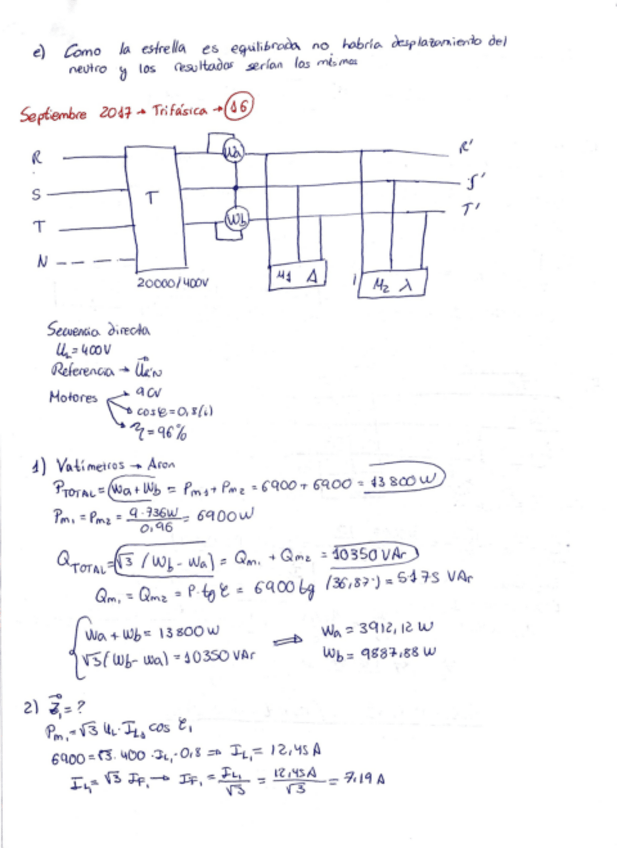 e) Como la estrella es equilibrada no habría desplazamiento del
neutro y los resultados serían los mismos
Septiembre 2017 → Trifásica → 16
R
S
T
N
T
20000/400V
Wa
Wb
M1 Δ
M2 λ
R'
S'
T'
Secuencia directa
U_L = 400V
Referencia → U_R'N
Motores
9 CV
cos φ = 0,8 (i)
η = 96%
1) Vatímetros → Aron
P_TOTAL = Wa + Wb = Pm1 + Pm2 = 6900 + 6900 = 13800 W
Pm1 = Pm2 = 9·736W / 0,96 = 6900 W
Q_TOTAL = √3 (Wb - Wa) = Qm1 + Qm2 = 10350 VAr
Qm1 = Qm2 = P·tg φ = 6900 tg (36,87°) = 5175 VAr
Wa + Wb = 13800 W
√3 (Wb - Wa) = 10350 VAr
⇒
Wa = 3912,12 W
Wb = 9887,88 W
2) Z1 = ?
Pm1 = √3 U_L · I_L1 cos φ1
6900 = √3 · 400 · I_L1 · 0,8 ⇒ I_L1 = 12,45 A
I_L1 = √3 I_F1 → I_F1 = I_L1 / √3 = 12,45A / √3 = 7,19 A